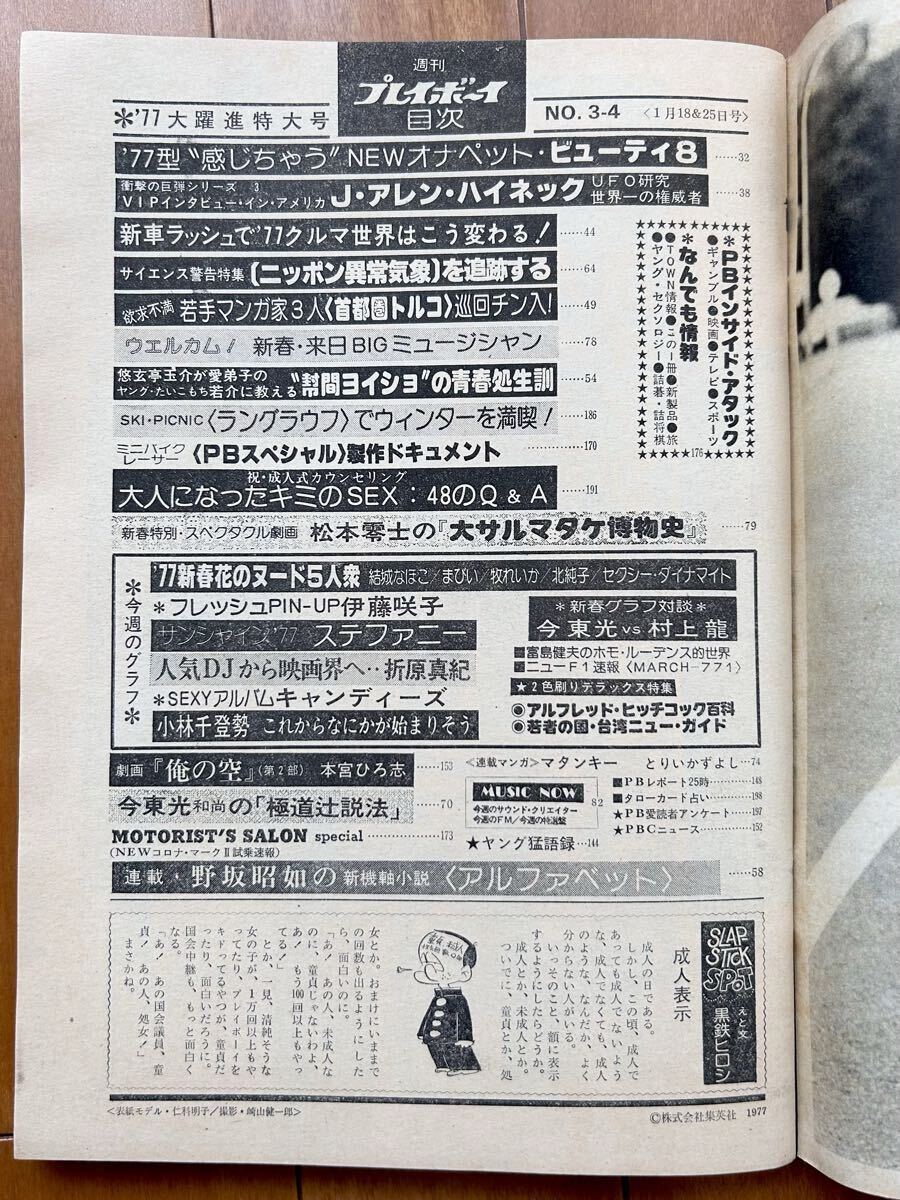 週刊
プレイボーイ
目次
*'77大躍進特大号
NO. 3-4 〈1月18&25日号〉
'77型“感じちゃう”NEWオナペット・ビューティ8 ……32
衝撃の巨弾シリーズ 3
VIPインタビュー・イン・アメリカ
J・アレン・ハイネック
UFO研究
世界一の権威者 ……38
新車ラッシュで'77クルマ世界はこう変わる! ……44
サイエンス警告特集 〔ニッポン異常気象〕を追跡する ……64
欲求不満 若手マンガ家3人〈首都圏トルコ〉巡回チン入! ……49
ウエルカム! 新春・来日BIGミュージシャン ……78
悠玄亭玉介が愛弟子の
ヤング・たいこもち若介に教える
“幇間ヨイショ”の青春処生訓 ……54
SKI・PICNIC〈ラングラウフ〉でウィンターを満喫! ……186
ミニバイク
レーサー
〈PBスペシャル〉製作ドキュメント ……170
祝・成人式カウンセリング
大人になったキミのSEX:48のQ&A ……191
新春特別・スペクタクル劇画 松本零士の『大サルマタケ博物史』 ……79
*PBインサイド・アタック
●ギャンブル●映画●テレビ●スポーツ
*なんでも情報
●TOWN情報●この一冊●新製品●旅
●ヤング・セクソロジー●詰碁・詰将棋
176
*今週のグラフ*
'77新春花のヌード5人衆 結城なほこ/まびい/牧れいか/北純子/セクシー・ダイナマイト
*フレッシュPIN-UP伊藤咲子
サンシャイン'77 ステファニー
人気DJから映画界へ‥折原真紀
*SEXYアルバムキャンディーズ
小林千登勢 これからなにかが始まりそう
*新春グラフ対談*
今東光vs村上龍
■富島健夫のホモ・ルーデンス的世界
■ニューF1速報〈MARCH-771〉
★2色刷りデラックス特集
●アルフレッド・ヒッチコック百科
●若者の国・台湾ニュー・ガイド
劇画『俺の空』(第2部) 本宮ひろ志 ……153
今東光和尚の「極道辻説法」 ……70
MOTORIST'S SALON special ……173
(NEWコロナ・マークⅡ試乗速報)
連載・野坂昭如の新機軸小説〈アルファベット〉 ……58
〈連載マンガ〉マタンキー とりいかずよし…74
MUSIC NOW
今週のサウンド・クリエイター
今週のFM/今週の特選盤
82
★ヤング猛語録…144
■PBレポート25時…148
■タローカード占い…198
★PB愛読者アンケート…197
★PBCニュース…152
SLAP-
STICK
SPOT
えと文
黒鉄ヒロシ
成人表示
成人の日である。
しかし、この頃、成人で
あっても成人でないよう
な、成人でなくても、成人
のような、なんだか、よく
分からない人がいる。
いっそのこと、額に表示
するようにしたらどうか。
成人とか、未成人とか。
ついでに、童貞とか、処
女とか。おまけにいままで
の回数も出るようにした
ら、面白いのに。
「あ!あの人、未成人な
のに、童貞じゃないわよ、
あ!もう100回以上もやっ
てる!」
とか、一見、清純そうな
女の子が、1万回以上もや
ってたり、プレイボーイを
キドってるやつが、童貞だ
ったり、面白いだろうに。
国会中継も、もっと面白く
なる。
「あ!あの国会議員、童
貞!あの人、処女!」
まさかね。
〈表紙モデル・仁科明子/撮影・崎山健一郎〉
©株式会社集英社 1977